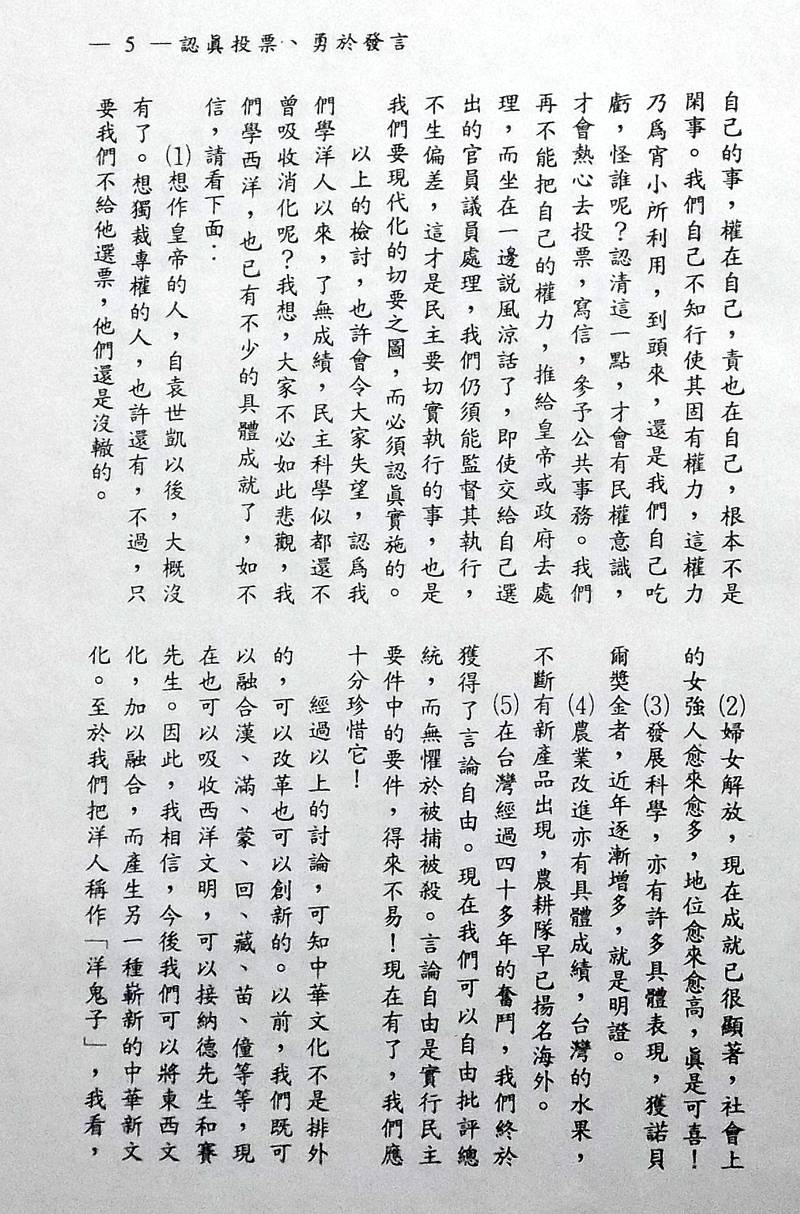 — 5 — 認眞投票、勇於發言
自己的事，權在自己，責也在自己，根本不是
閑事。我們自己不知行使其固有權力，這權力
乃爲宵小所利用，到頭來，還是我們自己吃
虧，怪誰呢？認清這一點，才會有民權意識，
才會熱心去投票，寫信，參予公共事務。我們
再不能把自己的權力，推給皇帝或政府去處
理，而坐在一邊說風涼話了，即使交給自己選
出的官員議員處理，我們仍須能監督其執行，
不生偏差，這才是民主要切實執行的事，也是
我們要現代化的切要之圖，而必須認眞實施的。
以上的檢討，也許會令大家失望，認爲我
們學洋人以來，了無成績，民主科學似都還不
曾吸收消化呢？我想，大家不必如此悲觀，我
們學西洋，也已有不少的具體成就了，如不
信，請看下面：
⑴想作皇帝的人，自袁世凱以後，大概沒
有了。想獨裁專權的人，也許還有，不過，只
要我們不給他選票，他們還是沒轍的。
⑵婦女解放，現在成就已很顯著，社會上
的女強人愈來愈多，地位愈來愈高，眞是可喜！
⑶發展科學，亦有許多具體表現，獲諾貝
爾獎金者，近年逐漸增多，就是明證。
⑷農業改進亦有具體成績，台灣的水果，
不斷有新產品出現，農耕隊早已揚名海外。
⑸在台灣經過四十多年的奮鬥，我們終於
獲得了言論自由。現在我們可以自由批評總
統，而無懼於被捕被殺。言論自由是實行民主
要件中的要件，得來不易！現在有了，我們應
十分珍惜它！
經過以上的討論，可知中華文化不是排外
的，可以改革也可以創新的。以前，我們旣可
以融合漢、滿、蒙、回、藏、苗、僮等等，現
在也可以吸收西洋文明，可以接納德先生和賽
先生。因此，我相信，今後我們可以將東西文
化，加以融合，而產生另一種嶄新的中華新文
化。至於我們把洋人稱作「洋鬼子」，我看，